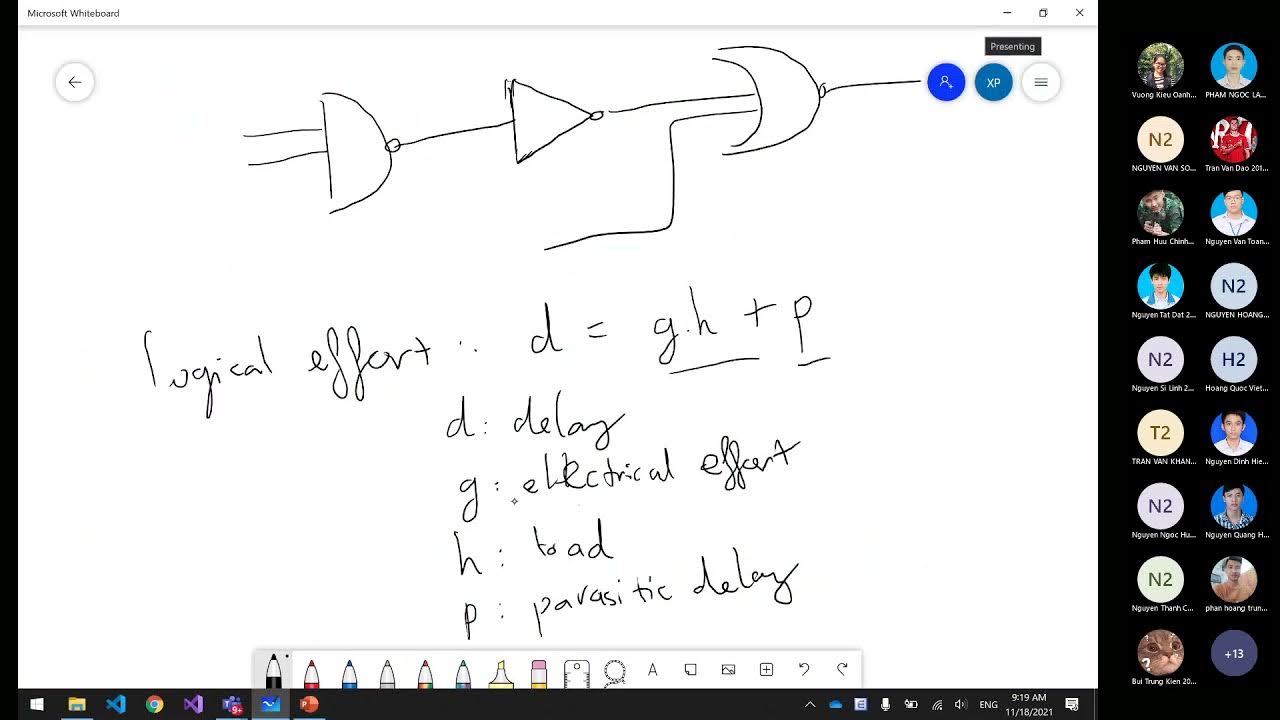 Microsoft Whiteboard
Presenting
XP
logical effort : d = g.h + p
d : delay
g : electrical effort
h : load
p : parasitic delay
Vuong Kieu Oanh...
PHAM NGOC LA...
N2
NGUYEN VAN SO...
Tran Van Dao 201...
Pham Huu Chinh...
Nguyen Van Toan...
Nguyen Tat Dat 2...
N2
NGUYEN HOANG...
N2
Nguyen Si Linh 2...
H2
Hoang Quoc Viet...
T2
TRAN VAN KHAN...
Nguyen Dinh Hie...
N2
Nguyen Ngoc Hu...
Nguyen Quang H...
N2
Nguyen Thanh C...
phan hoang trun...
Bui Trung Kien 20...
+13
A
9+
ENG
9:19 AM
11/18/2021